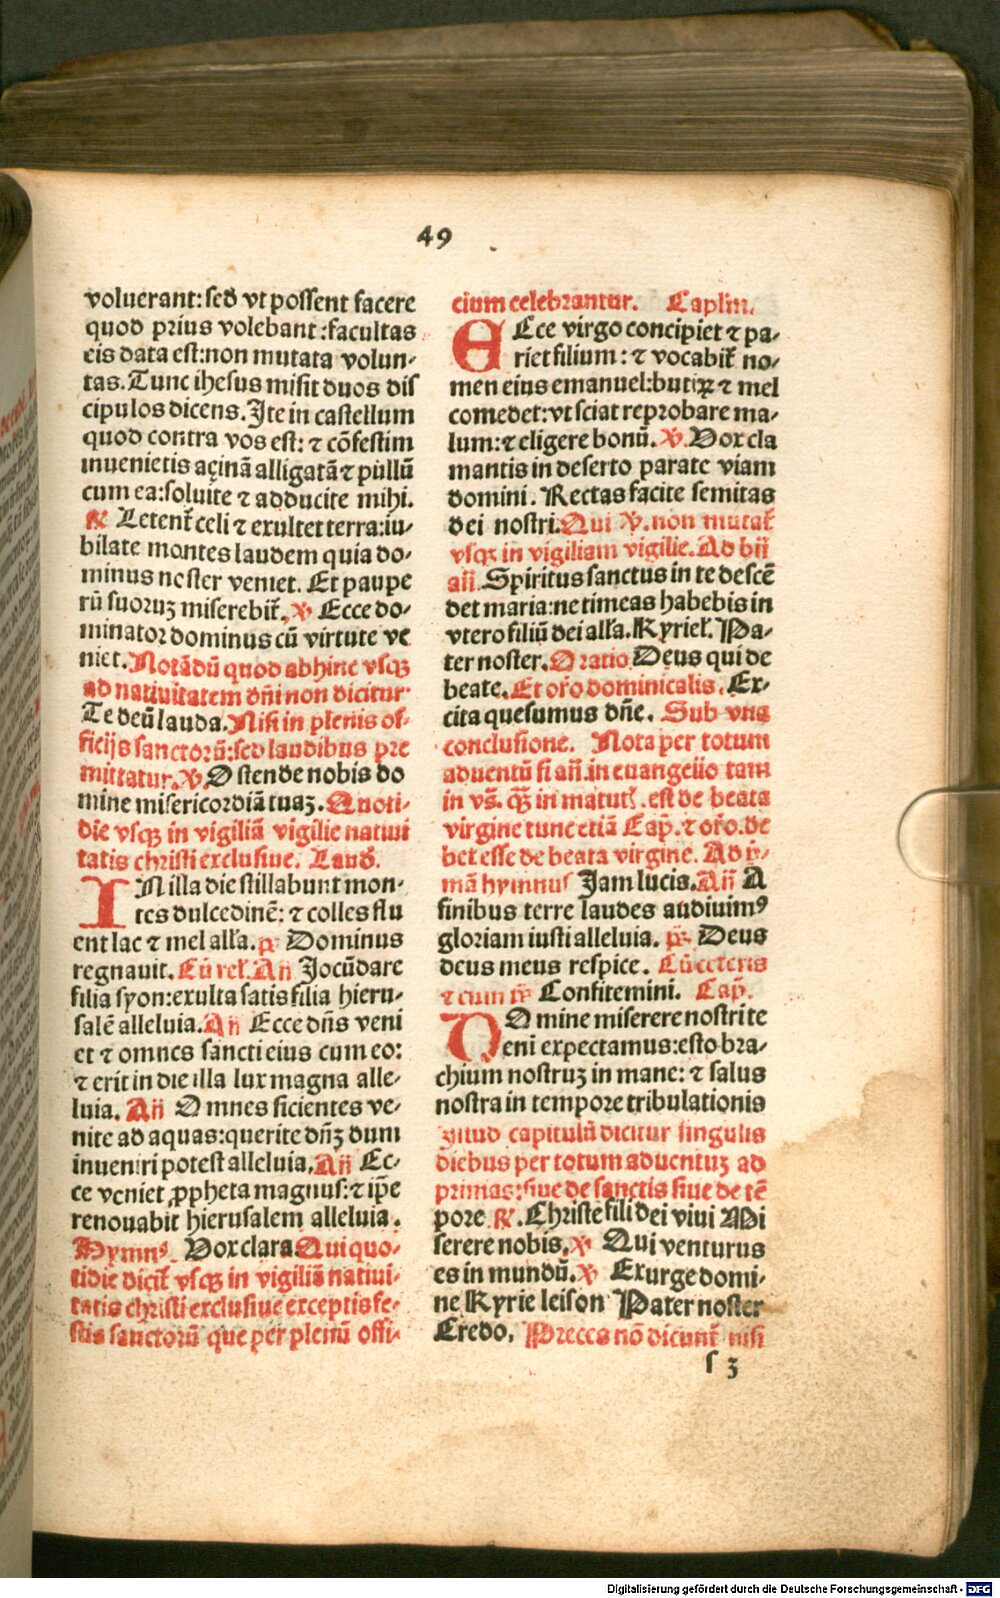 49
voluerant: sed vt possent facere
quod prius volebant: facultas
eis data est: non mutata volun-
tas. Tunc ihesus misit duos dis
cipulos dicens. Ite in castellum
quod contra vos est: ⁊ cõfestim
inuenietis açinã alligatã ⁊ pullũ
cum ea: soluite ⁊ adducite mihi.
℟ Letent̃ celi ⁊ exultet terra: iu-
bilate montes laudem quia do-
minus noster veniet. Et paupe
rũ suoruʒ miserebit̃. ℣ Ecce do-
minator dominus cũ virtute ve
niet. Notãdũ quod abhinc vsqʒ
ad natiuitatem dñi non dicitur
Te deũ lauda. Nisi in plenis of-
ficijs sanctorũ: sed laudibus pre
mittatur. ℣ Ostende nobis do
mine misericordiã tuaʒ. Quoti-
die vsqʒ in vigiliã vigilie natiui
tatis christi exclusiue. Laud̃.
IN illa die stillabunt mon-
tes dulcedinẽ: ⁊ colles flu
ent lac ⁊ mel alł̃a. p̃s Dominus
regnauit. Cũ rel̃. Añ Jocũdare
filia syon: exulta satis filia hieru-
salẽ alleluia. Añ Ecce dñs veni
et ⁊ omnes sancti eius cum eo:
⁊ erit in die illa lux magna alle-
luia. Añ Omnes sicientes ve-
nite ad aquas: querite dñʒ dum
inueniri potest alleluia. Añ Ec-
ce veniet ꝓpheta magnus: ⁊ ip̃e
renouabit hierusalem alleluia.
Hymnꝰ. Vox clara Qui quo-
tidie dicit̃ vsqʒ in vigiliã natiui-
tatis christi exclusiue exceptis fe-
stis sanctorũ que per plenũ offi-
cium celebrantur. Capl̃m.
ECce virgo concipiet ⁊ pa-
riet filium: ⁊ vocabit̃ no-
men eius emanuel: butiꝝ ⁊ mel
comedet: vt sciat reprobare ma-
lum: ⁊ eligere bonũ. ℣. Vox cla
mantis in deserto parate viam
domini. Rectas facite semitas
dei nostri. Qui ℣. non mutat̃
vsqʒ in vigiliam vigilie. Ad bñ
añ. Spiritus sanctus in te descẽ
det maria: ne timeas habebis in
vtero filiũ dei alł̃a. Kyriel̃. Pa-
ter noster. Oratio. Deus qui de
beate. Et or̃o dominicalis. Ex-
cita quesumus dñe. Sub vna
conclusione. Nota per totum
aduentũ si añ. in euangelio tam
in vs̃. qʒ̃ in matut̃. est de beata
virgine tunc etiã Cap̃. ⁊ or̃o. de
bet esse de beata virgine. Ad p̃-
mã hymnus Jam lucis. Añ A
finibus terre laudes audiuimꝰ
gloriam iusti alleluia. p̃s. Deus
deus meus respice. Cũ ceteris
⁊ cum p̃s Confitemini. Cap̃.
DOmine miserere nostri te
eni expectamus: esto bra-
chium nostruʒ in mane: ⁊ salus
nostra in tempore tribulationis
Istud capitulũ dicitur singulis
diebus per totum aduentuʒ ad
primas: siue de sanctis siue de tẽ
pore ℟. Christe fili dei viui Mi
serere nobis. ℣ Qui venturus
es in mundũ. ℣ Exurge domi-
ne Kyrie leison Pater noster
Credo. Preces nõ dicunt̃ nisi
s 3
Digitalisierung gefördert durch die Deutsche Forschungsgemeinschaft - DFG